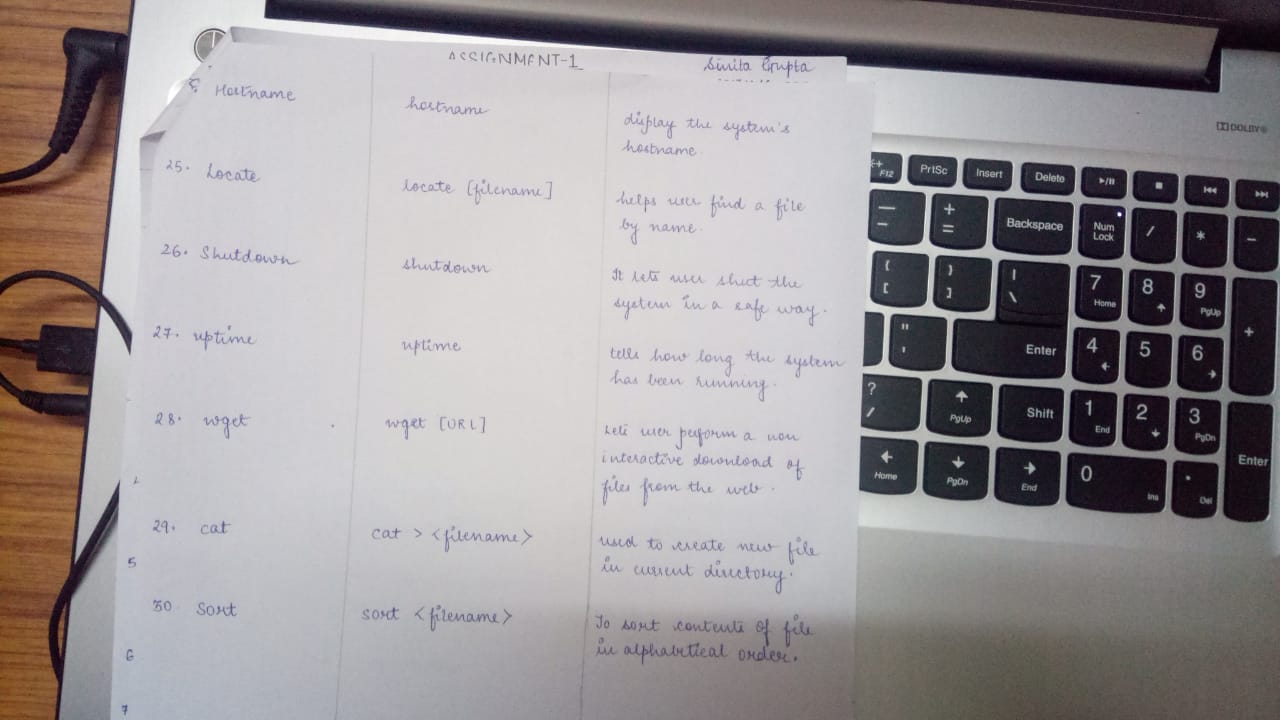 ASSIGNMENT-1
Gupta
Hostname hostname display the system's
hostname.
25. Locate locate [filename] helps user find a file
by name.
26. Shutdown shutdown It lets user shut the
system in a safe way.
27. uptime uptime tells how long the system
has been running.
28. wget wget [URL] Lets user perform a non
interactive download of
files from the web.
29. cat cat > <filename> used to create new file
in current directory.
30. Sort sort <filename> To sort contents of file
in alphabetical order.
5
6
7
DOLBY
F12 PrtSc Insert Delete
Backspace Num
Lock / * -
7 Home 8 9 PgUp +
Enter 4 5 6
? / PgUp Shift 1 End 2 3 PgDn
Home PgDn End 0 Ins . Del Enter